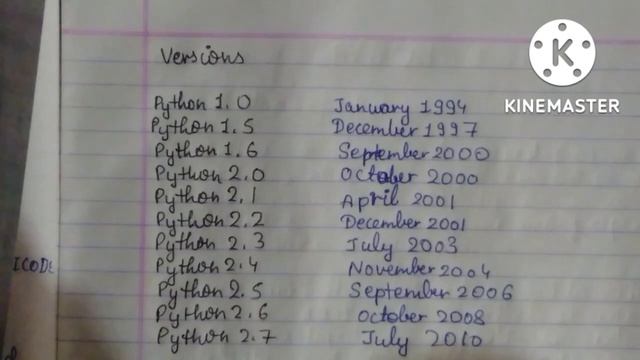 Versions
K
KINEMASTER
Python 1.0 January 1994
Python 1.5 December 1997
Python 1.6 September 2000
Python 2.0 October 2000
Python 2.1 April 2001
Python 2.2 December 2001
Python 2.3 July 2003
Python 2.4 November 2004
ICODE
Python 2.5 September 2006
Python 2.6 October 2008
Python 2.7 July 2010